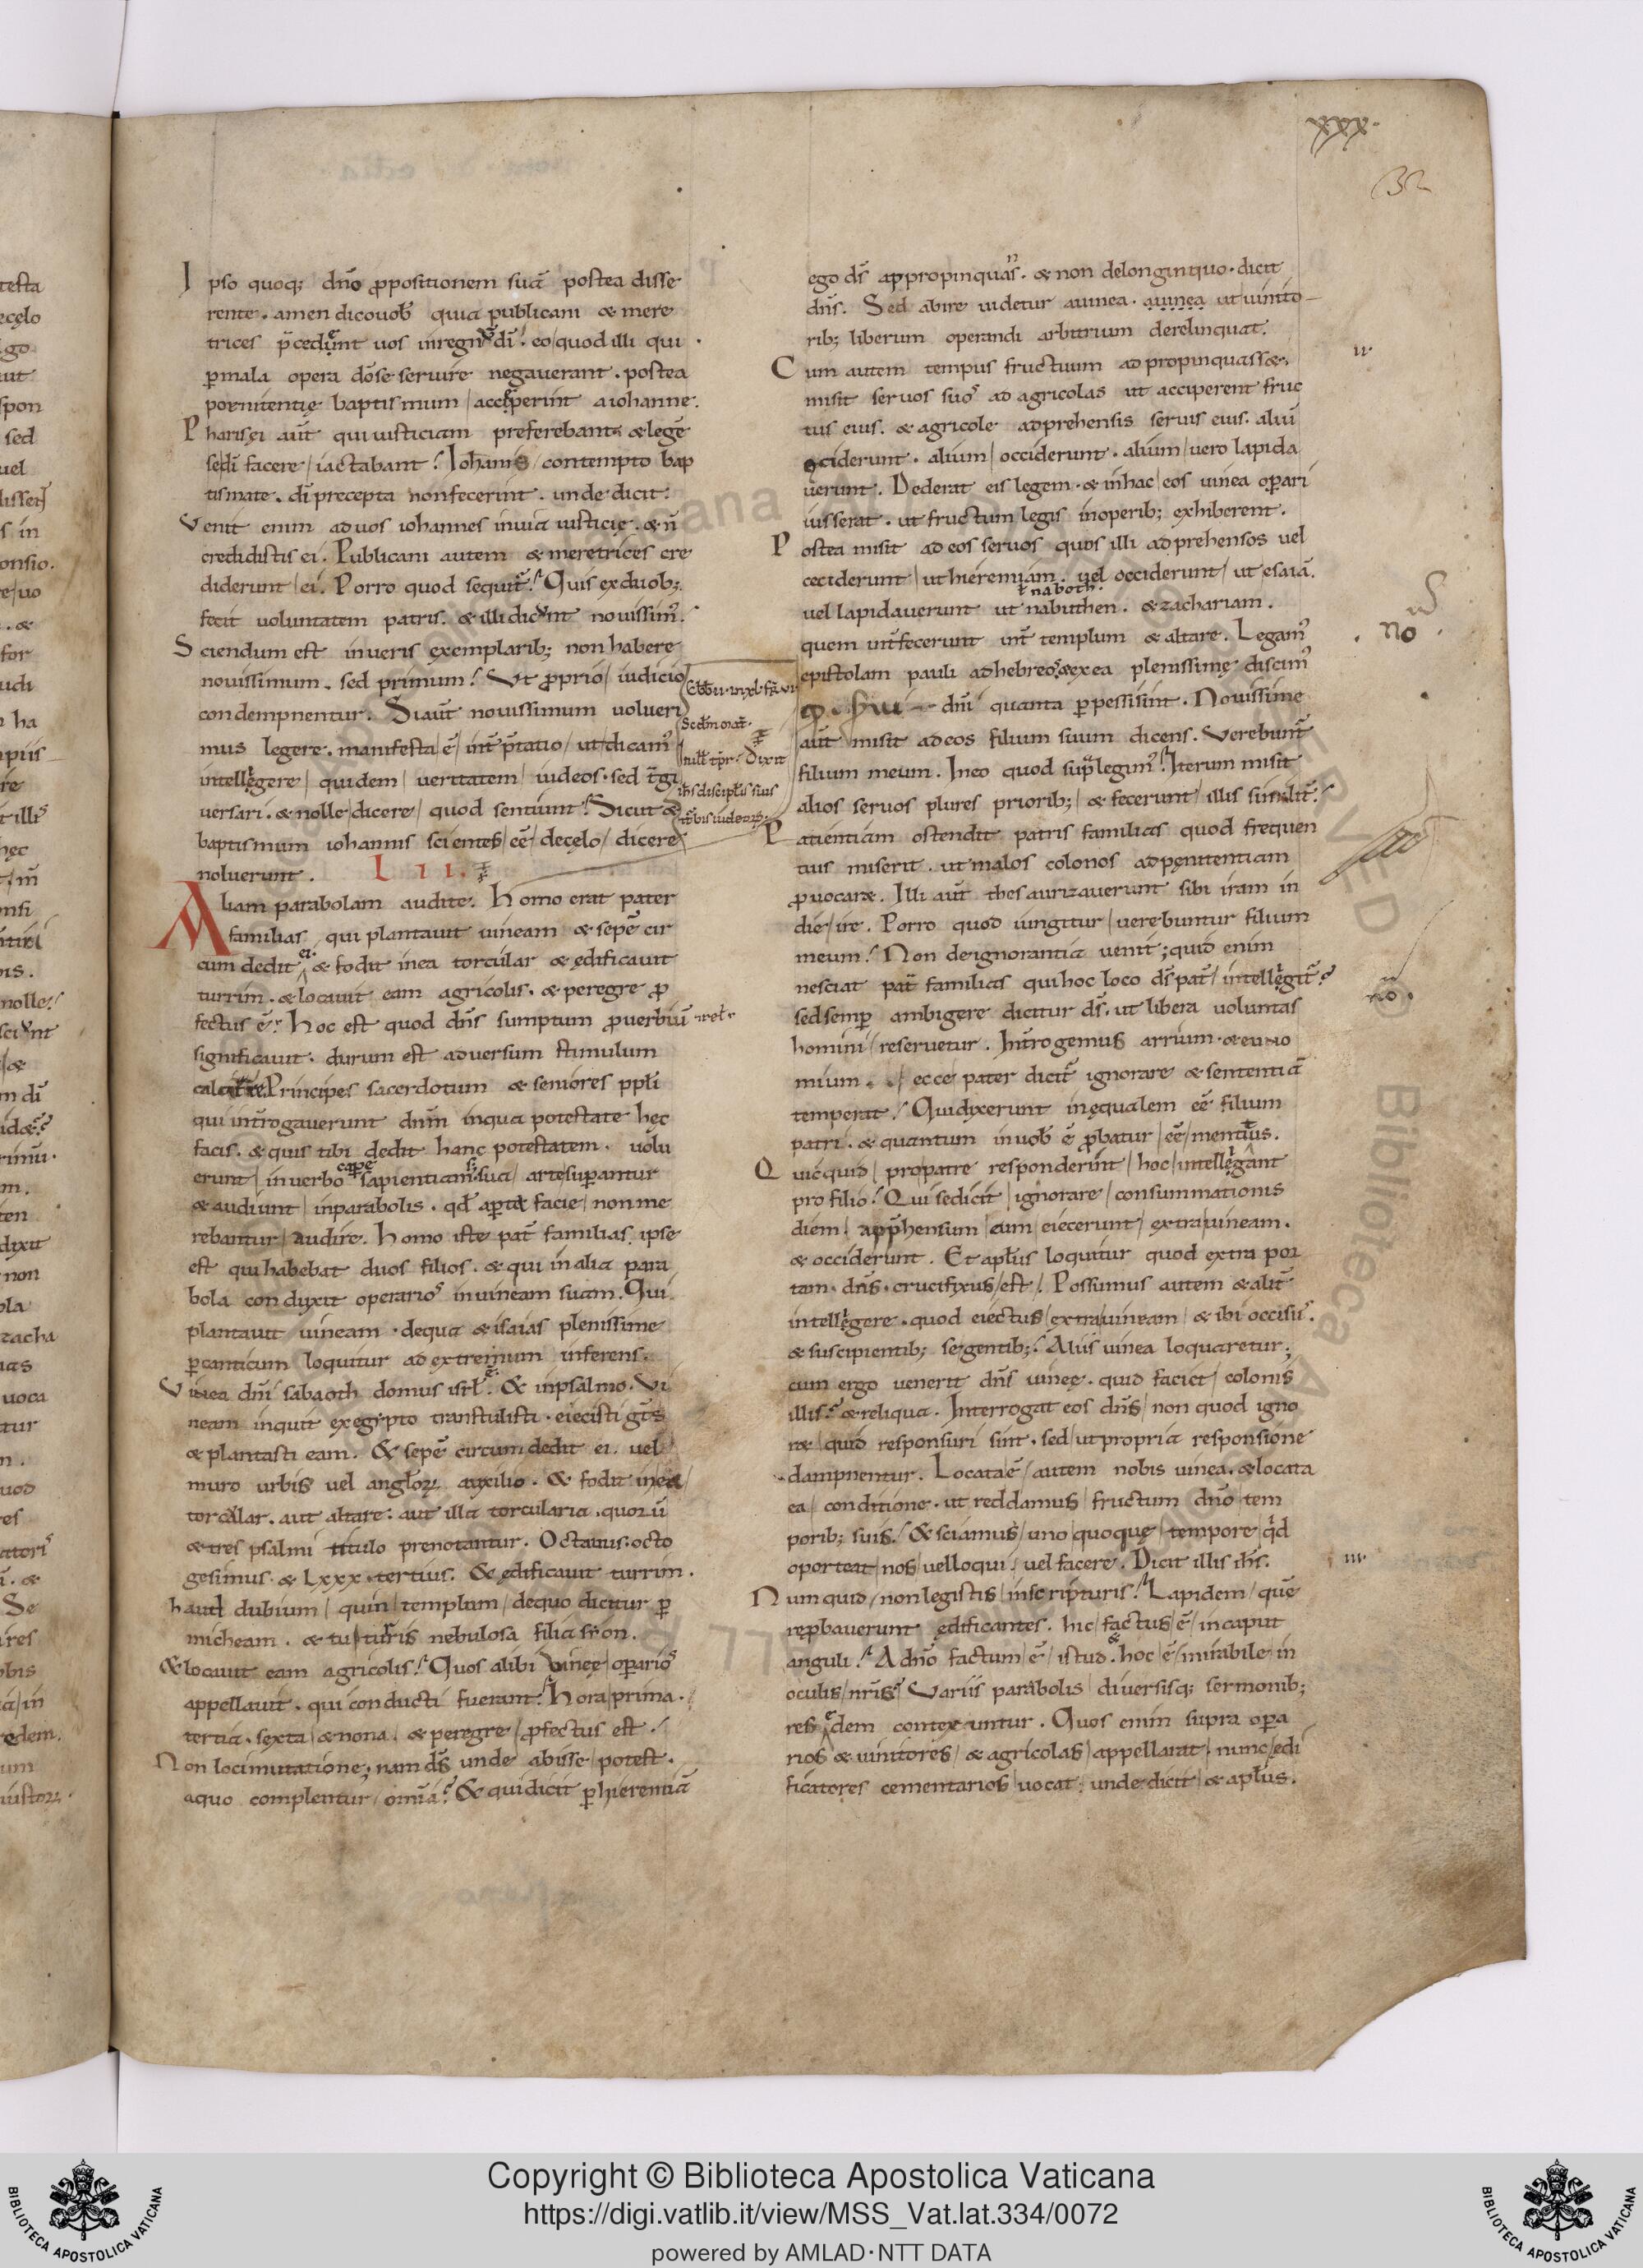 xxx.
32
Ipso quoq; dño ꝓpositionem suã postea disse
rente. amen dico uob̄ quia publicani & mere
trices p̄cedunt uos in regnũ dī. eo quod illi qui
ꝑ mala opera dõ se seruire negauerant. postea
poenitentię baptismum acceperint a iohanne.
Pharisęi aut̄ qui iusticiam preferebant & legē
se dī facere iactabant. Iohannis contempto bap
tismate. dī precepta non fecerint. unde dicit.
Venit enim ad uos iohannes in uia iusticię. & ñ
credidistis ei. Publicani autem & meretrices cre
diderunt ei. Porro quod sequit̃. Quis ex duob;
fecit uoluntatem patris. & illi dicunt nouissim᾽.
Sciendum est in ueris exemplarib; non habere
nouissimum. sed primum. Ut ꝓprio iudicio
condempnentur. Si aut̄ nouissimum uolueri
mus legere. manifesta ē int̄ p̄tatio ut dicam᾽
intellegere quidem ueritatem iudeos. sed t̄gi
uersari. & nolle dicere quod sentiunt. Sicut &
baptismum iohannis scientes eē de cęlo dicere
noluerunt. LII.
Aliam parabolam audite. Homo erat pater
familias qui plantauit uineam & sepē cir
cum dedit ei. & fodit in ea torcular & ędificauit
turrim. & locauit eam agricolis. & peregre ꝓ
fectus ē. Hoc est quod dñs sumptum ꝓuerbiũ
significauit. durum est aduersum stimulum
calcitrare. Principes sacerdotum & seniores ppłi
qui int̄rogauerunt dñm in qua potestate hęc
facis. & quis tibi dedit hanc potestatem. uolu
erunt in uerbo capē sapientiam sua arte supantur
& audiunt in parabolis. qd̄ apta facie non me
rebantur audire. Homo iste pat̄ familias ipse
est qui habebat duos filios. & qui in alia para
bola conduxit operarios in uineam suam. Qui
plantauit uineam. de qua & isaias plenissime
ꝑ canticum loquitur ad extremum inferens.
Vinea dñi sabaoth domus isrł ē. & in psalmo. Vi
neam inquit ex egypto transtulisti. eiecisti gt̄s
& plantasti eam. & sepē circumdedit ei. uel
muro urbis uel angłorꝝ auxilio. & fodit in ea
torcular. aut altare. aut illa torcularia. quorũ
& tres psalmi titulo prenotantur. Octauus. octo
gesimus. & Lxxx. tertius. & ędificauit turrim.
haud dubium quin templum de quo dicitur ꝑ
micheam. & tu turris nebulosa filia sion.
& locauit eam agricolis. Quos alibi uineę opariọs
appellauit. qui conducti fuerant. Hora prima.
tertia. sexta & nona. & peregre ꝓfectus est.
Non loci mutatione; nam dš unde abisse potest.
a quo complentur omia? & qui dicit ꝑ hieremiã
ego dš appropinquãs. & non de longinquo. dicit
dñs. Sed abire uidetur a uinea. a uinea ut uinito
rib; liberum operandi arbitrium derelinquat.
Cum autem tempus fructuum adpropinquass&.
misit seruos suos ad agricolas ut acciperent fruc
tus eius. & agricole adprehensis seruis eius. aliũ
ceciderunt. alium occiderunt. alium uero lapida
uerunt. Dederat eis legem. & in hac eos uinea opari
iusserat. ut fructum legis in operib; exhiberent.
Postea misit ad eos seruos quos illi adprehensos uel
ceciderunt ut hieremiam. uel occiderunt ut esaiã.
ł naboth.
uel lapidauerunt ut nabuthen. & zachariam.
quem int̄fecerunt int̄ templum & altare. Legam᾽
epistolam pauli ad hebreos. & ex ea plenissime discim᾽
dñi quanta ꝑpessi sint. Nouissime
aut̄ misit ad eos filium suum dicens. Verebunt̃
filium meum. In eo quod sup̄ legim᾽. Iterum misit
alios seruos plures priorib; & fecerunt illis similit̃.
Patientiam ostendit patris familias quod frequen
tius miserit. ut malos colonos ad penitentiam
ꝓuocar&. Illi aut̄ thesaurizauerunt sibi iram in
die irę. Porro quod iungitur uerebuntur filium
meum. Non de ignorantia uenit; quid enim
nesciat pat̄ familias qui hoc loco dš pat̄ intellegit̃?
sed semp ambigere dicitur dš. ut libera uoluntas
homini reseruetur. Int̄rogemus arrium. & euno
mium. ecce pater dicit̃ ignorare & sententiã
temperat. Qui dixerunt inęqualem eē filium
patri. & quantum in uob̄ ē ꝓbatur eē mentitus.
Quicquid pro patre responderint hoc intellegant
pro filio. Qui se dicit ignorare consummationis
diem. app̄hensum eum eiecerunt extra uineam.
& occiderunt. Et apłus loquitur quod extra por
tam. dñs. crucifixus est. Possumus autem & alit̃
intellegere. quod eiectus extra uineam & ibi occisus.
& suscipientib; se gentib; Aliis uinea loquaretur;
cum ergo uenerit dñs uineę. quid faciet colonis
illis? & reliqua. Interrogat eos dñs non quod igno
r& quid responsuri sint. sed ut propria responsione
dampnentur. Locata ē autem nobis uinea. & locata
ea conditione. ut reddamus fructum dño tem
porib; suis. & sciamus uno quoque tempore qd̄
oporteat nos uel loqui uel facere. Dicit illis ihs̄.
Numquid non legistis in scripturis. Lapidem quē
reprobauerunt ędificantes. hic factus ē in caput
anguli. A dño factum ē istud. & hoc ē mirabile in
oculis nr̄is? Variis parabolis diuersisq; sermonib;
res ędem contexuntur. Quos enim supra opa
rios & uinitores & agricolas appellarat. nunc ędi
ficatores cementarios uocat; unde dicit & apłus.
no
no.
Copyright © Biblioteca Apostolica Vaticana
https://digi.vatlib.it/view/MSS_Vat.lat.334/0072
powered by AMLAD·NTT DATA
BIBLIOTECA APOSTOLICA VATICANA
BIBLIOTECA APOSTOLICA VATICANA